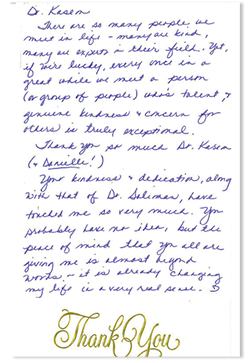 Dr. Kasem
There are so many people we
meet in life - many are kind,
many are experts in their field. Yet,
if we're lucky, every once in a
great while we meet a person
(or group of people) who's talent, &
genuine kindness & concern for
others is truly exceptional.
Thank you so much Dr. Kasem
(& Danielle!)
Your kindness & dedication, along
with that of Dr. Soliman, have
touched me so very much. You
probably have no idea, but the
peace of mind that you all are
giving me is almost beyond
words - it is already changing
my life in a very real sense.
Thank You